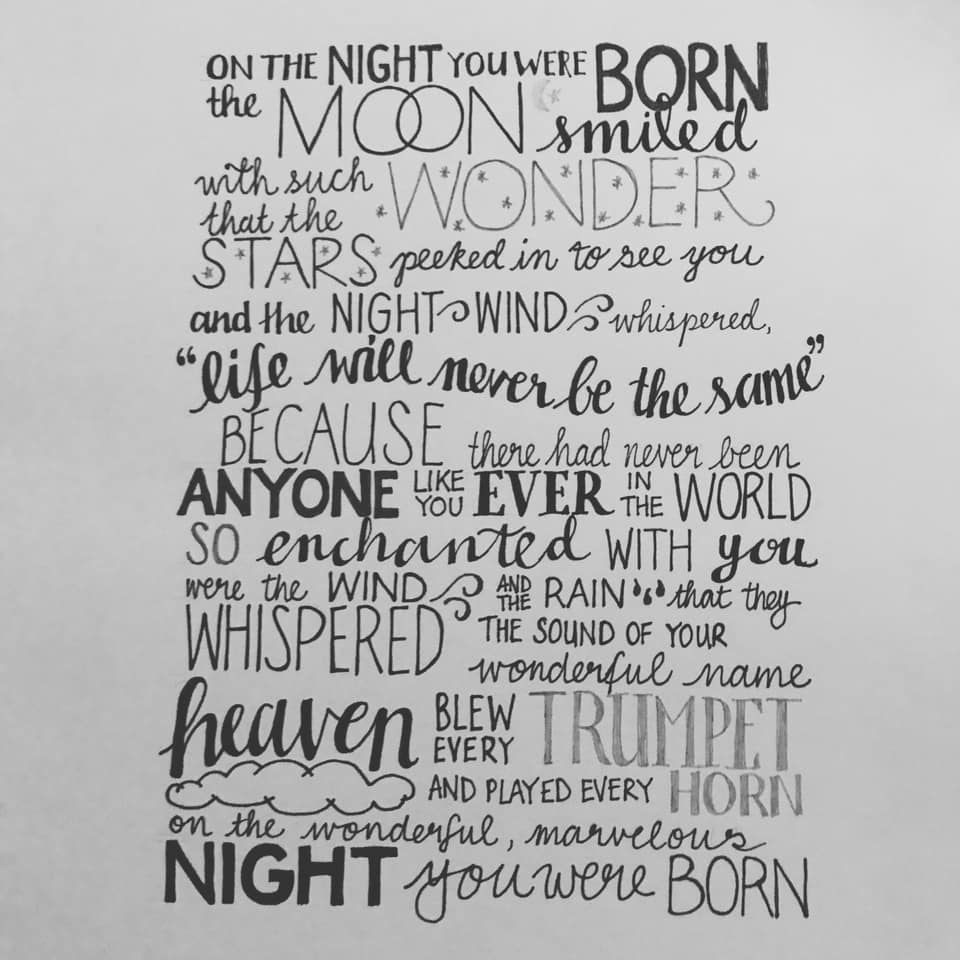 ON THE NIGHT YOU WERE BORN
the MOON smiled
with such WONDER
that the
STARS peeked in to see you
and the NIGHT WIND whispered,
“life will never be the same”
BECAUSE there had never been
ANYONE LIKE YOU EVER IN THE WORLD
SO enchanted WITH you
were the WIND AND THE RAIN that they
WHISPERED THE SOUND OF YOUR
wonderful name
heaven BLEW EVERY TRUMPET
AND PLAYED EVERY HORN
on the wonderful, marvelous
NIGHT you were BORN